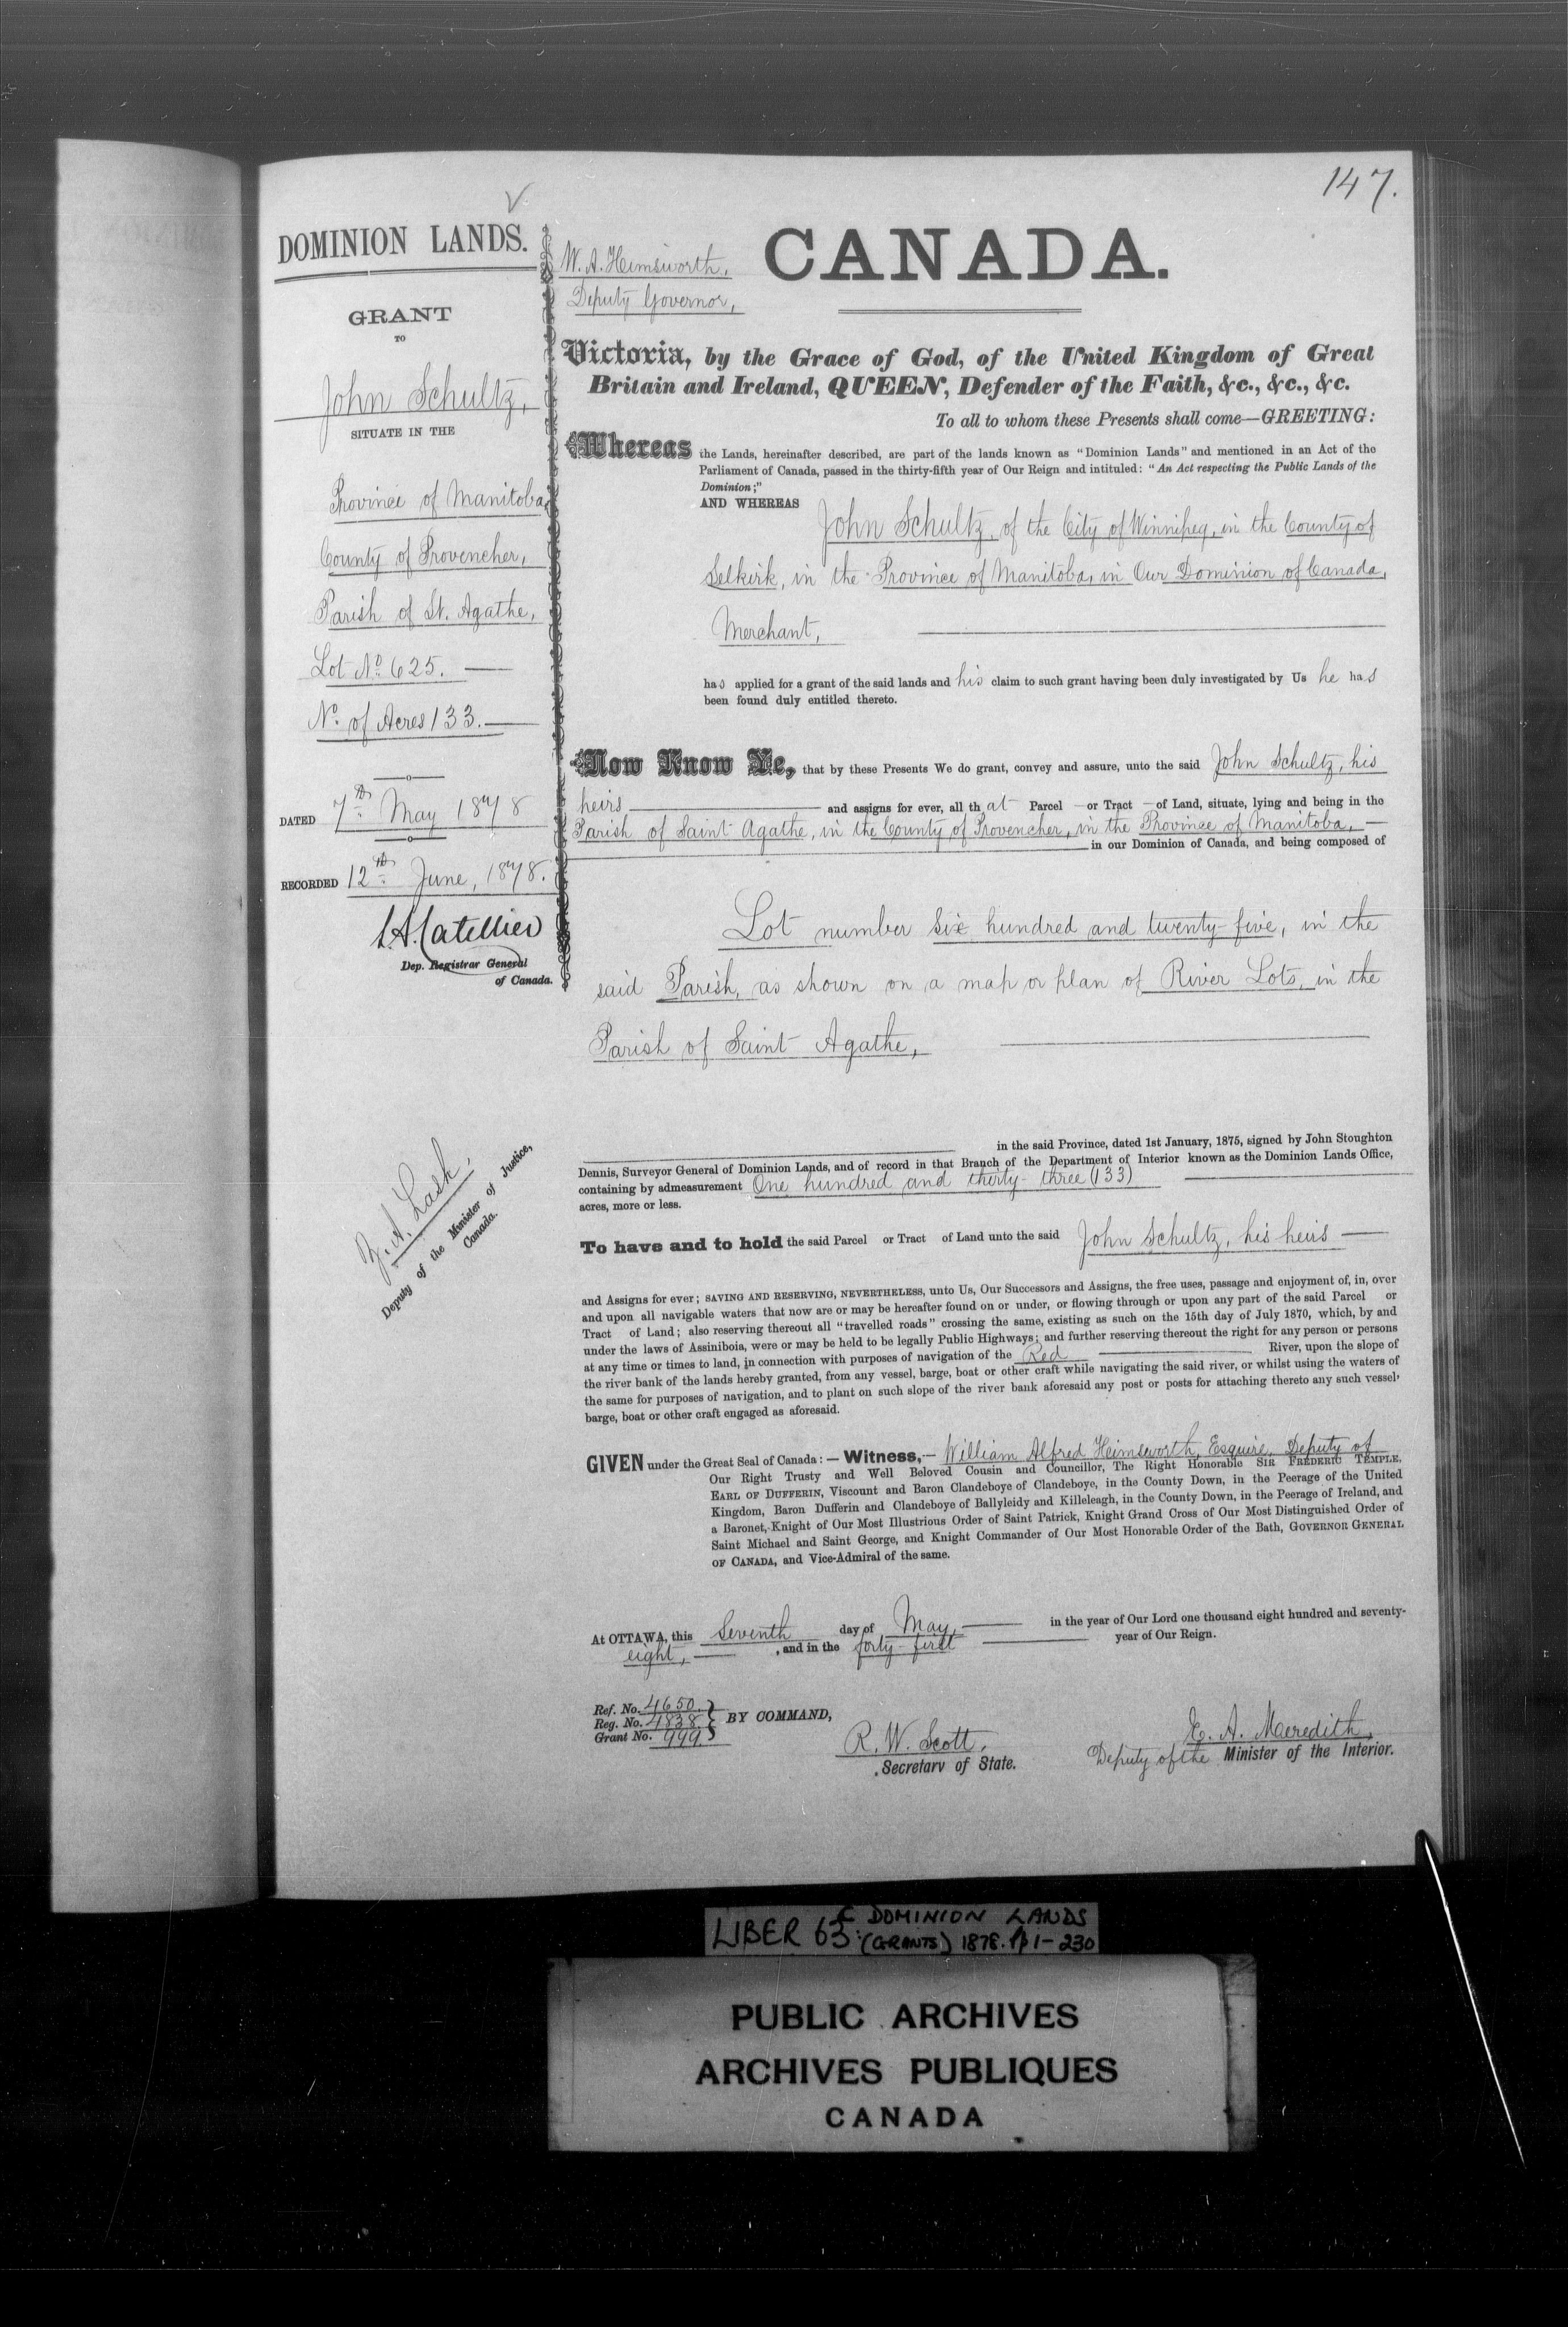 147.
DOMINION LANDS.
GRANT
TO
John Schultz,
SITUATE IN THE
Province of Manitoba,
County of Provencher,
Parish of St. Agathe,
Lot No. 625.
No. of Acres 133.
DATED 7th May 1878
RECORDED 12th June, 1878.
L.A. Catellier
Dep. Registrar General
of Canada.
Z. A. Lash,
Deputy of the Minister of Justice,
Canada.
W. A. Himsworth,
Deputy Governor,
CANADA.
Victoria, by the Grace of God, of the United Kingdom of Great
Britain and Ireland, QUEEN, Defender of the Faith, &c., &c., &c.
To all to whom these Presents shall come—GREETING:
Whereas the Lands, hereinafter described, are part of the lands known as "Dominion Lands" and mentioned in an Act of the
Parliament of Canada, passed in the thirty-fifth year of Our Reign and intituled: "An Act respecting the Public Lands of the
Dominion;"
AND WHEREAS John Schultz, of the City of Winnipeg, in the County of
Selkirk, in the Province of Manitoba, in Our Dominion of Canada,
Merchant,
has applied for a grant of the said lands and his claim to such grant having been duly investigated by Us he has
been found duly entitled thereto.
Now Know Ye, that by these Presents We do grant, convey and assure, unto the said John Schultz, his
heirs and assigns for ever, all that Parcel or Tract of Land, situate, lying and being in the
Parish of Saint Agathe, in the County of Provencher, in the Province of Manitoba,
in our Dominion of Canada, and being composed of
Lot number six hundred and twenty-five, in the
said Parish, as shown on a map or plan of River Lots, in the
Parish of Saint Agathe,
in the said Province, dated 1st January, 1875, signed by John Stoughton
Dennis, Surveyor General of Dominion Lands, and of record in that Branch of the Department of Interior known as the Dominion Lands Office,
containing by admeasurement One hundred and thirty-three (133)
acres, more or less.
To have and to hold the said Parcel or Tract of Land unto the said John Schultz, his heirs
and Assigns for ever; SAVING AND RESERVING, NEVERTHELESS, unto Us, Our Successors and Assigns, the free uses, passage and enjoyment of, in, over
and upon all navigable waters that now are or may be hereafter found on or under, or flowing through or upon any part of the said Parcel or
Tract of Land; also reserving thereout all "travelled roads" crossing the same, existing as such on the 15th day of July 1870, which, by and
under the laws of Assiniboia, were or may be held to be legally Public Highways; and further reserving thereout the right for any person or persons
at any time or times to land, in connection with purposes of navigation of the Red River, upon the slope of
the river bank of the lands hereby granted, from any vessel, barge, boat or other craft while navigating the said river, or whilst using the waters of
the same for purposes of navigation, and to plant on such slope of the river bank aforesaid any post or posts for attaching thereto any such vessel,
barge, boat or other craft engaged as aforesaid.
GIVEN under the Great Seal of Canada:—Witness,—William Alfred Himsworth, Esquire, Deputy of
Our Right Trusty and Well Beloved Cousin and Councillor, The Right Honorable SIR FREDERIC TEMPLE,
EARL OF DUFFERIN, Viscount and Baron Clandeboye of Clandeboye, in the County Down, in the Peerage of the United
Kingdom, Baron Dufferin and Clandeboye of Ballyleidy and Killeleagh, in the County Down, in the Peerage of Ireland, and
a Baronet, Knight of Our Most Illustrious Order of Saint Patrick, Knight Grand Cross of Our Most Distinguished Order of
Saint Michael and Saint George, and Knight Commander of Our Most Honorable Order of the Bath, GOVERNOR GENERAL
OF CANADA, and Vice-Admiral of the same.
At OTTAWA, this Seventh day of May, in the year of Our Lord one thousand eight hundred and seventy-
eight, , and in the forty-first year of Our Reign.
Ref. No. 4650.
Reg. No. 4838.
Grant No. 999.
BY COMMAND,
R. W. Scott,
Secretary of State.
E. A. Meredith,
Deputy of the Minister of the Interior.
LIBER 63: C DOMINION LANDS
(GRANTS) 1878. pp 1-230
PUBLIC ARCHIVES
ARCHIVES PUBLIQUES
CANADA